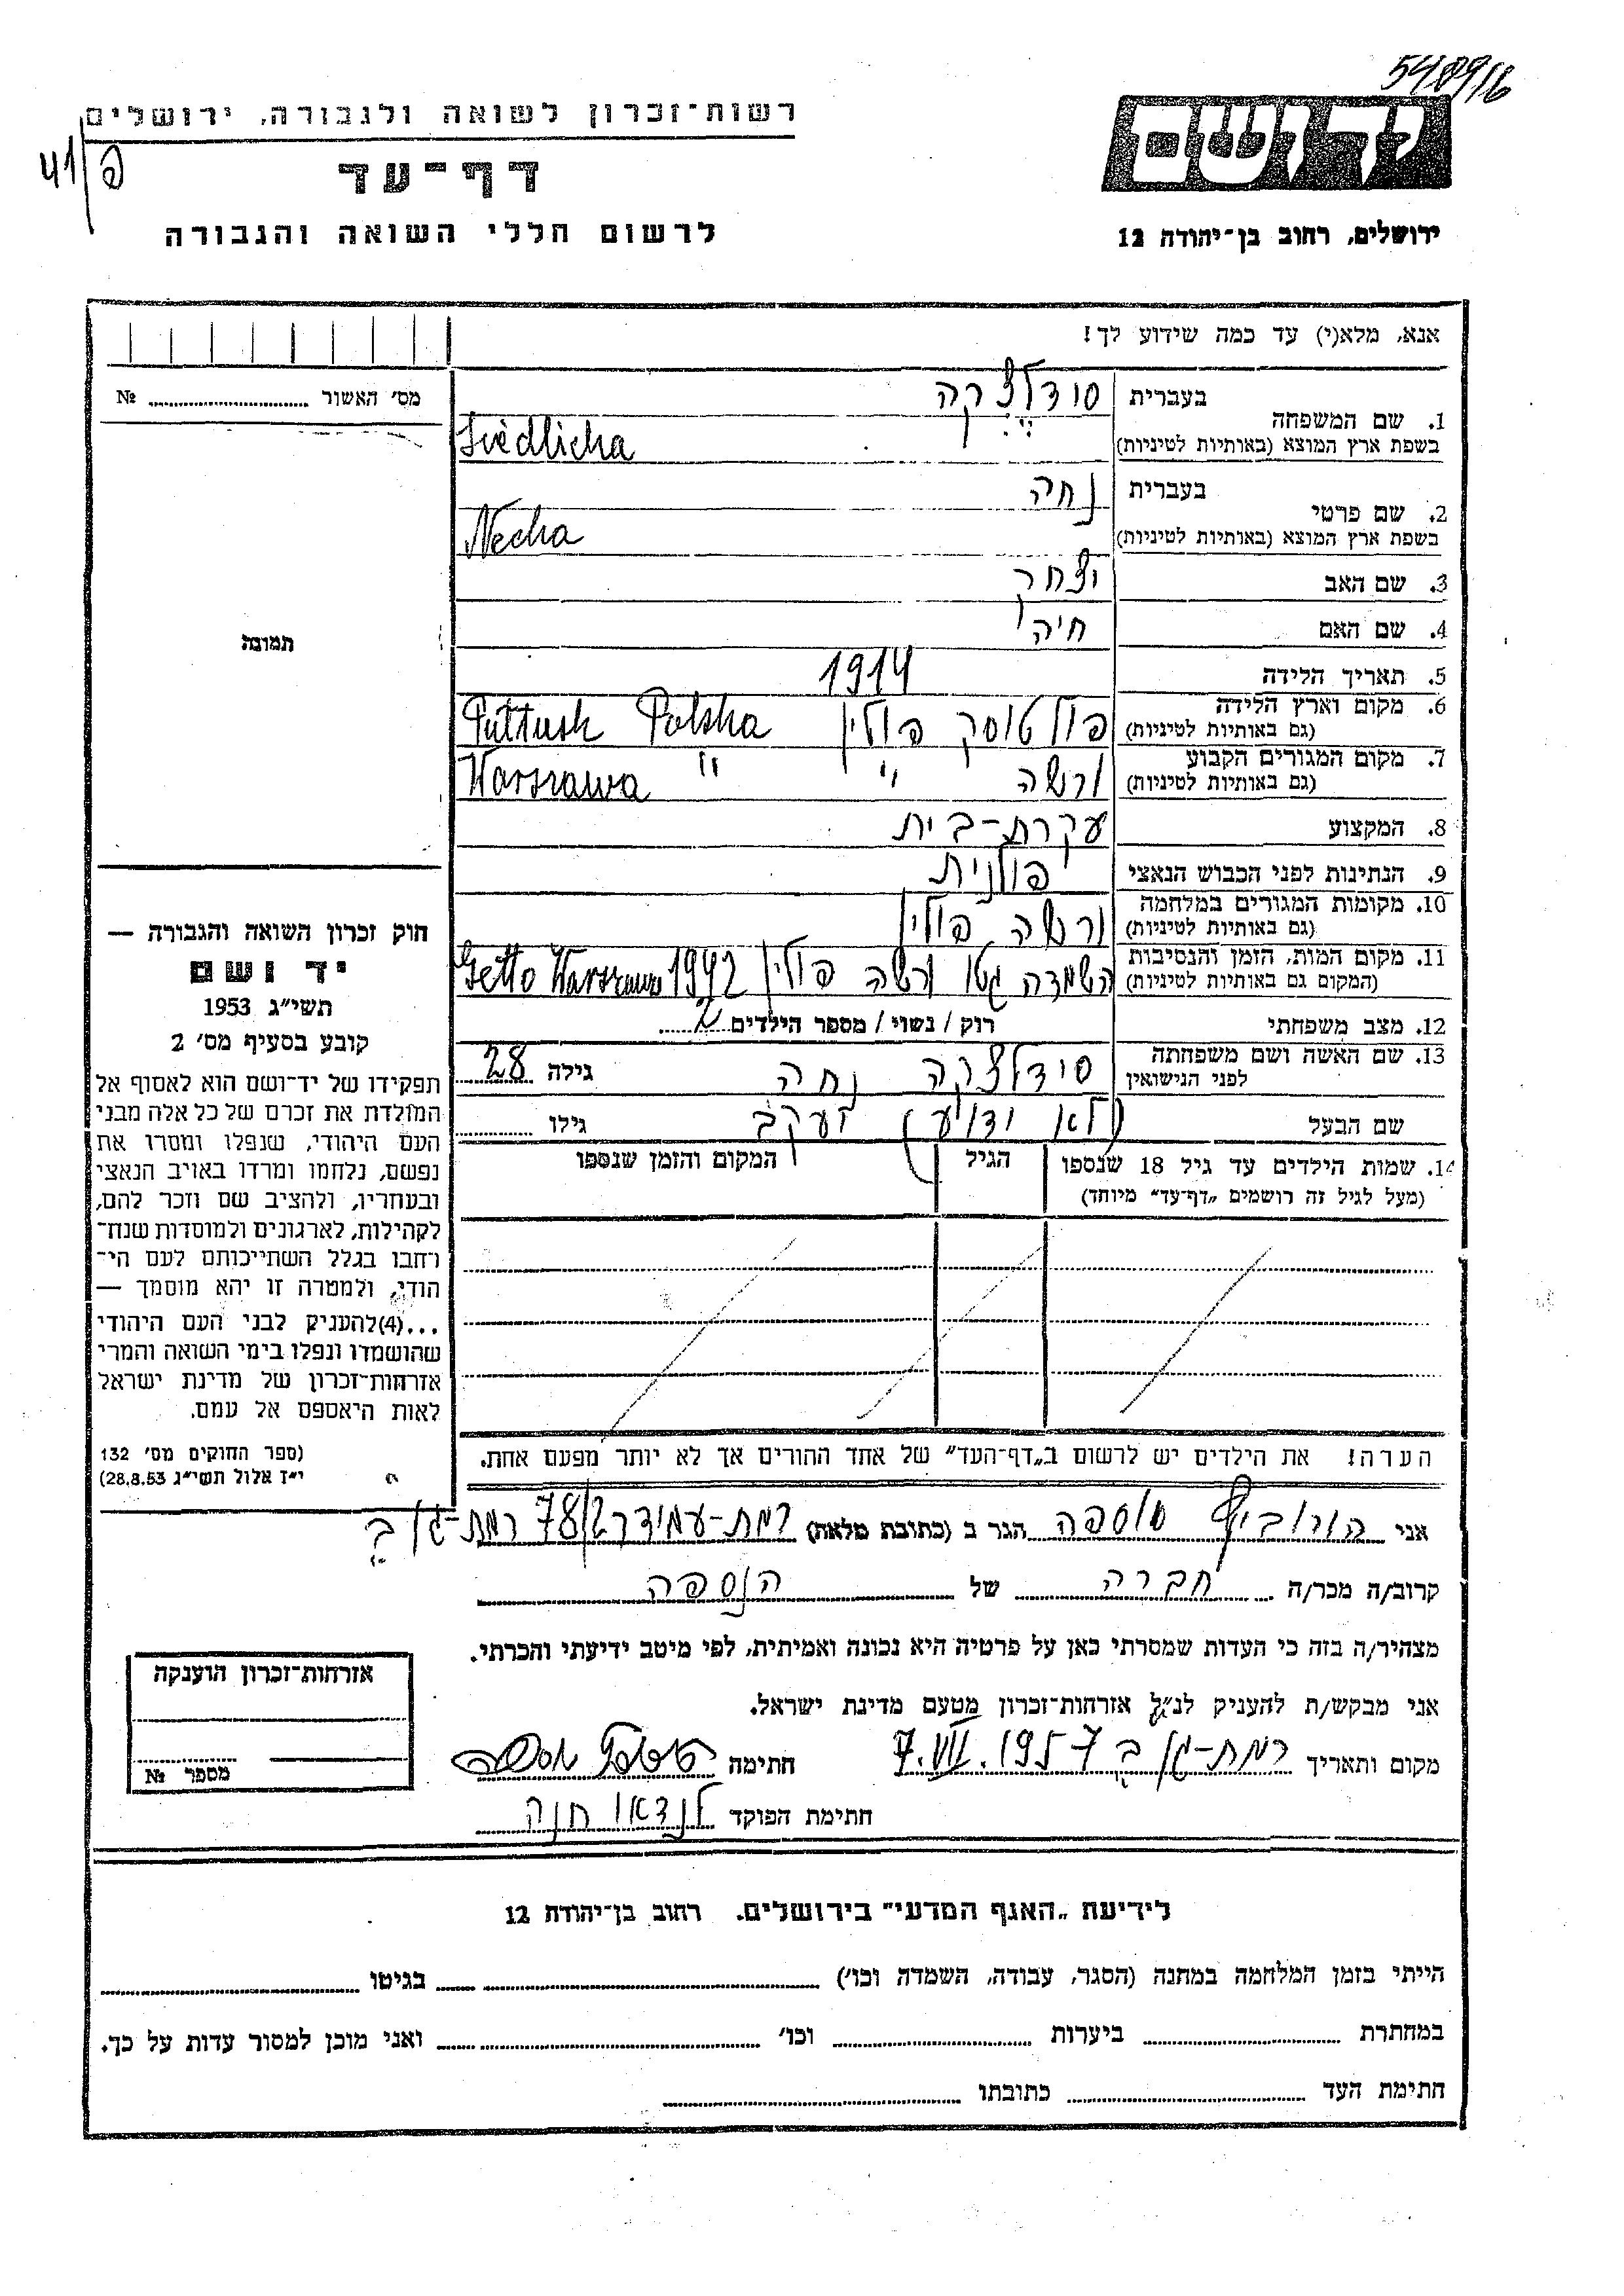 רשות-זכרון לשואה ולגבורה, ירושלים
דף-עד
לרשום חללי השואה והגבורה
41/פ
ידושם
ירושלים, רחוב בן-יהודה 12
אנא, מלא(י) עד כמה שידוע לך!
מס׳ האשור № 
1. שם המשפחה
בעברית
בשפת ארץ המוצא (באותיות לטיניות)
Siedlicka
2. שם פרטי
בעברית נחה
בשפת ארץ המוצא (באותיות לטיניות) Necha
3. שם האב
4. שם האם חיה
5. תאריך הלידה 1914
6. מקום וארץ הלידה
(גם באותיות לטיניות) פולטוסק פולין Pułtusk Polska
7. מקום המגורים הקבוע
(גם באותיות לטיניות) ורשה " Warszawa "
8. המקצוע עקרת-בית
9. הנתינות לפני הכבוש הנאצי פולנית
10. מקומות המגורים במלחמה
(גם באותיות לטיניות) ורשה פולין
11. מקום המות, הזמן והנסיבות
(המקום גם באותיות לטיניות) השמדה גטו ורשה פולין 1942 Getto Warszawa
12. מצב משפחתי רוק / נשוי / מספר הילדים
13. שם האשה ושם משפחתה
לפני הנישואין נחה גילה 28
שם הבעל (לא ידוע) יעקב גילו
14. שמות הילדים עד גיל 18 שנספו הגיל המקום והזמן שנספו
(מעל לגיל זה רושמים „דף-עד״ מיוחד)
הערה! את הילדים יש לרשום ב„דף-העד״ של אחד ההורים אך לא יותר מפעם אחת.
תמונה
חוק זכרון השואה והגבורה —
יד ושם
תשי״ג 1953
קובע בסעיף מס׳ 2
תפקידו של יד-ושם הוא לאסוף אל
המולדת את זכרם של כל אלה מבני
העם היהודי, שנפלו ומסרו את
נפשם, נלחמו ומרדו באויב הנאצי
ובעוזריו, ולהציב שם וזכר להם,
לקהילות, לארגונים ולמוסדות שנח-
רחבו בגלל השתייכותם לעם הי-
הודי, ולמטרה זו יהא מוסמך —
...(4)להעניק לבני העם היהודי
שהושמדו ונפלו בימי השואה והמרי
אזרחות-זכרון של מדינת ישראל
לאות היאספם אל עמם.
(ספר החוקים מס׳ 132
י״ז אלול תשי״ג 28.8.53)
אני הורוביץ הגר ב (כתובת מלאה) רמת-עמידר 78/2 רמת-גן ב׳
קרוב/ה מכר/ה חברה של הנספה
מצהיר/ה בזה כי העדות שמסרתי כאן על פרטיה היא נכונה ואמיתית, לפי מיטב ידיעתי והכרתי.
אני מבקש/ת להעניק לנ״ל אזרחות-זכרון מטעם מדינת ישראל.
מקום ותאריך רמת-גן ב׳ 7.VII.1957 חתימה
חתימת הפוקד לנדאו חנה
אזרחות-זכרון הוענקה
מספר №
לידיעת „האגף המדעי״ בירושלים. רחוב בן-יהודה 12
הייתי בזמן המלחמה במחנה (הסגר, עבודה, השמדה וכו׳) בגיטו
במחתרת ביערות וכו׳ ואני מוכן למסור עדות על כך.
חתימת העד כתובתו